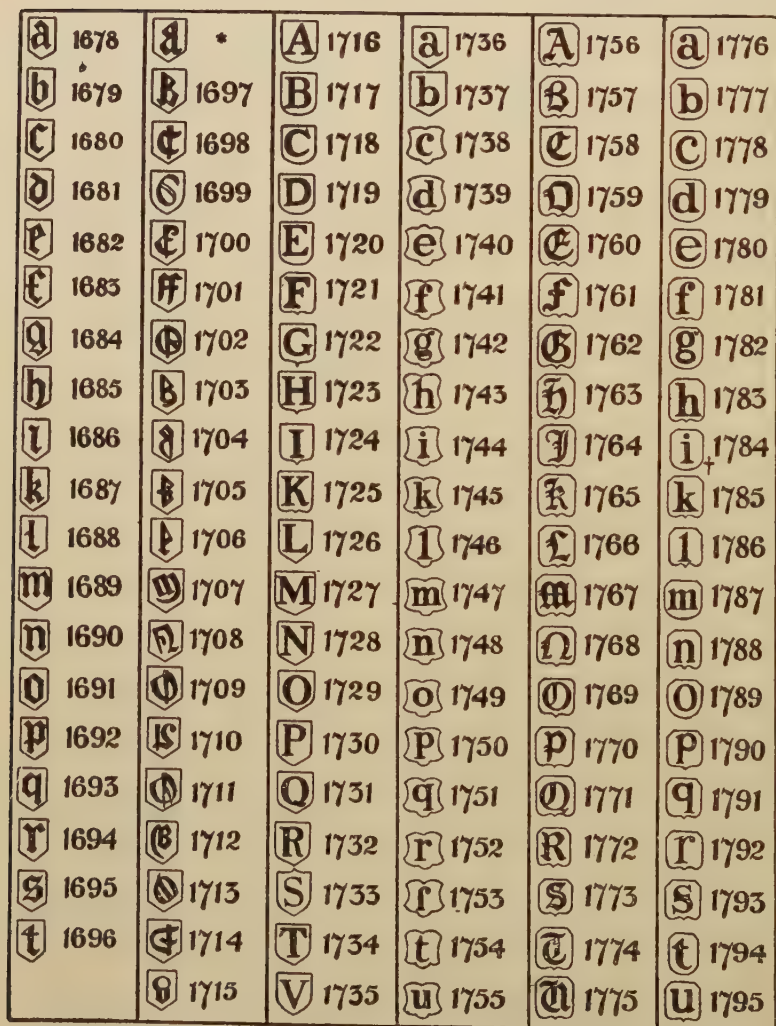 a 1678 a * A 1716 a 1736 A 1756 a 1776
b 1679 B 1697 B 1717 b 1737 B 1757 b 1777
c 1680 C 1698 C 1718 c 1738 C 1758 c 1778
d 1681 1699 D 1719 d 1739 D 1759 d 1779
e 1682 E 1700 E 1720 e 1740 E 1760 e 1780
f 1683 ff 1701 F 1721 f 1741 F 1761 f 1781
g 1684 1702 G 1722 g 1742 G 1762 g 1782
h 1685 1703 H 1723 h 1743 H 1763 h 1783
i 1686 1704 I 1724 i 1744 J 1764 i † 1784
k 1687 1705 K 1725 k 1745 K 1765 k 1785
l 1688 1706 L 1726 l 1746 L 1766 l 1786
m 1689 1707 M 1727 m 1747 M 1767 m 1787
n 1690 1708 N 1728 n 1748 N 1768 n 1788
o 1691 1709 O 1729 o 1749 O 1769 O 1789
p 1692 1710 P 1730 p 1750 P 1770 P 1790
q 1693 1711 Q 1731 q 1751 Q 1771 q 1791
r 1694 1712 R 1732 r 1752 R 1772 r 1792
s 1695 1713 S 1733 ſ 1753 S 1773 s 1793
t 1696 1714 T 1734 t 1754 T 1774 t 1794
1715 V 1735 u 1755 U 1775 u 1795